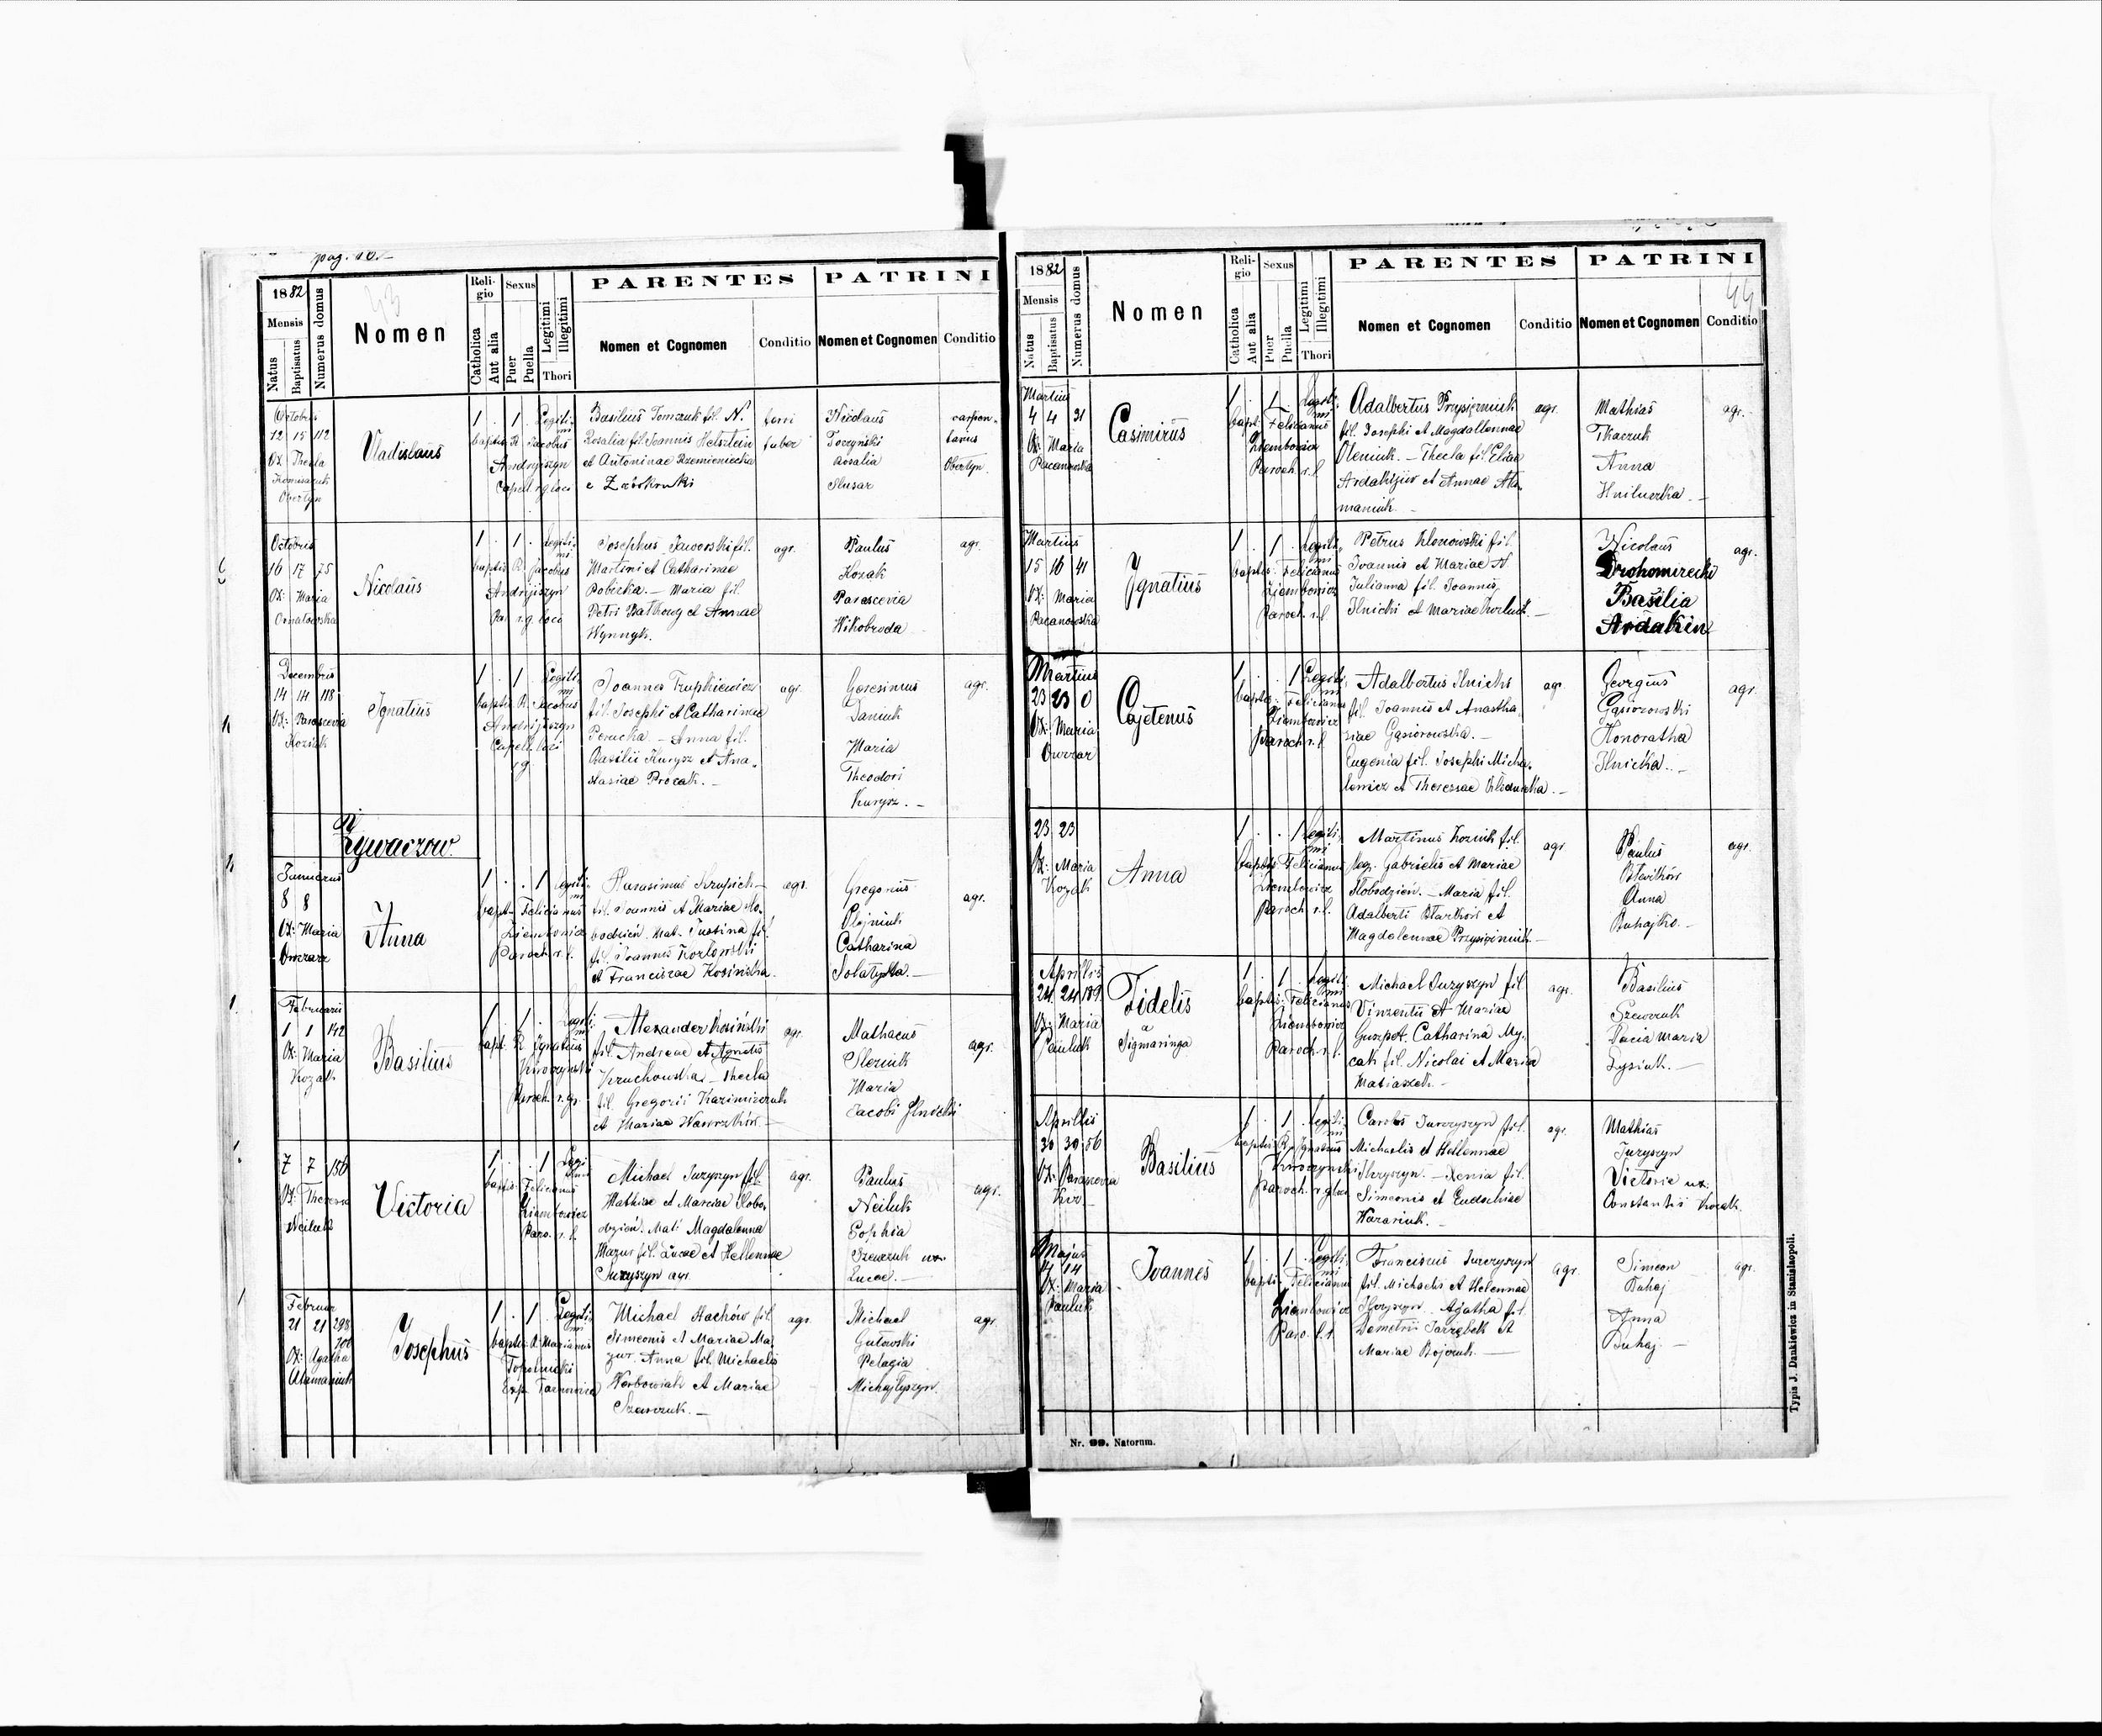 pag. 10.
1882
43
Mensis
Natus
Baptisatus
Numerus domus
Nomen
Religio
Catholica
Aut alia
Sexus
Puer
Puella
Legitimi
Illegitimi
Thori
PARENTES
Nomen et Cognomen
Conditio
PATRINI
Nomen et Cognomen
Conditio
Octobris
12 15 112
Ox Thecla
Obertyn
Vladislaus
1 . 1 . Legiti-
mi
baptis. R. Jacobus
Andryiszyn
Capell. r. g. loci
Basilius Tomczuk fil. N.
Rosalia fil. Joannis
et Antoninae Rzemieniecka
e
ferri
faber
Nicolaus
Toczyński
Rosalia
Slusar
carpen-
tarius
Obertyn.
Octobris
16 17 75
Ox: Maria
Ornatowska
Nicolaus
1 . 1 . Legiti-
mi
baptis R. Jacobus
Andryiszyn
r. g. loci
Josephus Jaworski fil.
Martini et Catharinae
Bobicka. — Maria fil.
Petri et Annae
Wynnyk.
agr.
Paulus
Kozak
Parascevia
Wikobroda
agr.
Decembris
14 14 118
Ox: Parascevia
Koziuk
Ignatius
1 . 1 . Legiti-
mi
baptis R. Jacobus
Andryiszyn
Capell. loci
r g.
Joannes
fil. Josephi et Catharinae
— Anna fil.
Basilii Kurysz et Ana-
stasiae Procak. —
agr.
Daniuk
Maria
Theodori
Kurysz. —
agr.
Żywaczow.
Januarius
8 8
Ox: Maria
Owczarz
Anna
1 . . 1 Legiti-
mi
bapt. Felicianus
Ziembowicz
Paroch. r. l.
Harasimus
fil. Joannis et Mariae Slo-
bodzien. Mat. Justina fil.
fil. Joannis Kozlowski
et Franciscae Kosińska.
agr.
Gregorius
Catharina
agr.
Februarii
1 1 142
Ox: Maria
Kozak
Basilius
1 . 1 . Legiti-
mi
bapt. R. Ignatius
Paroch. r. gr.
Alexander Kosiński
fil. Andreae et Agnetis
Kruchowska — Thecla
fil. Gregorii Kazimirczuk
et Mariae
agr.
Mathaeus
Maria
Jacobi Ilnicki
agr.
7 7 156
Ox: Theressa
Neiluk
Victoria
1 . . 1 Legi
timi
baptis. Felicianus
Ziembowicz
Paro. r. l.
Michael Juzyszyn fil.
Mathiae et Mariae Slobo-
dzień. Mat: Magdalenna
Mazur fil. Lucae et Hellennae
Juzyszyn agr.
agr.
Paulus
Neiluk
Sophia
Szewczuk ux.
Lucae. —
agr.
Februar
21 21 293
Ox: Agatha
Atamaniuk
Josephus
1 . 1 . Legiti-
mi
baptis. R. Marianus
Exp. Tarnowica
Michael Stachów fil.
Simeonis et Mariae Ma-
zur. Anna fil. Michaelis
Werbowiak et Mariae
Szewczuk. —
agr.
Michael
Gutowski
Pelagia
Michajlyszyn
agr.
1882
44
Mensis
Natus
Baptisatus
Numerus domus
Nomen
Religio
Catholica
Aut alia
Sexus
Puer
Puella
Legitimi
Illegitimi
Thori
PARENTES
Nomen et Cognomen
Conditio
PATRINI
Nomen et Cognomen
Conditio
Martius
4 4 31
Ox: Maria
Racanowska
Casimirus
1 . 1 . Legiti-
mi
bapt. Felicianus
Ziembowicz
Paroch. r. l.
Adalbertus Przysiężniuk
fil. Josephi et Magdalennae
Oleniuk. — Thecla fil. Eliae
et Annae Ata-
maniuk. —
agr.
Mathias
Tkaczuk
Anna
Hniluszka. —
agr.
Martius
15 16 41
Ox: Maria
Racanowska
Ignatius
1 . 1 . Legiti-
mi
baptis. Felicianus
Ziembowicz
Paroch. r. l.
Petrus Klonowski fil.
Joannis et Mariae N
Julianna fil. Joannis
Ilnicki et Mariae —
Nicolaus
Drohomirecki
Basilia
Ardakin
agr.
Martius
23 23 0
Ox: Maria
Owczar
Cajetenus
1 . . 1 Legiti-
mi
baptis: Felicianus
Ziembowicz
Paroch r. l.
Adalbertus Ilnicki
fil. Joannis et Anastha-
ziae Gąsiorowska. —
Eugenia fil. Josephi Micha-
lewicz et Theressae —
agr.
Georgius
Gąsiorowski
Honoratha
Ilnicka. —
agr.
23 23
Ox: Maria
Kozak
Anna
1 . . 1 Legiti-
mi
baptis. Felicianus
Ziembowicz
Paroch r. l.
Martinus Koziuk fil.
leg. Gabrielis et Mariae
Slobodzien. — Maria fil.
Adalberti et
Magdalennae Przysiężniuk. —
agr
Paulus
Anna
Buhajko. —
agr.
Aprillis
24 24 189
Ox: Maria
Pauluk
Fidelis
a
Sigmaringa
1 . 1 . Legiti-
mi
baptis: Felicianus
Ziembowicz
Paroch r. l.
Michael Juzyszyn fil
Vinzentii et Mariae
Catharina My-
cak fil. Nicolai et Maria
Matiaszek. —
agr.
Basilius
Szewczuk
Maria
Lysiuk. —
Aprillis
30 30 56
Ox: Parascevia
Basilius
1 . 1 . Legiti-
mi
baptis. R. Ignatius
Paroch. r. g. loci
Carolus Jurczyszyn fil.
Michaelis et Hellennae
— Xenia fil.
Simeonis et Eudochiae
agr.
Mathias
Juzyszyn
Victorie ux.
Constantii Kozak.
Majus
14 14
Ox: Maria
Pauluk
Joannes
1 . 1 . Legiti-
mi
baptis. Felicianus
Ziembowicz
Paro. l. r.
Franciscus Jurczyszyn
fil. Michaelis et Helennae
Agatha fil.
Demetrii Jarzębek et
Mariae Bojczuk. —
agr.
Simeon
Buhaj
Anna
Buhaj —
agr.
Nr. 99. Natorum.
Typis J. Dankiewicz in Stanislaopoli.